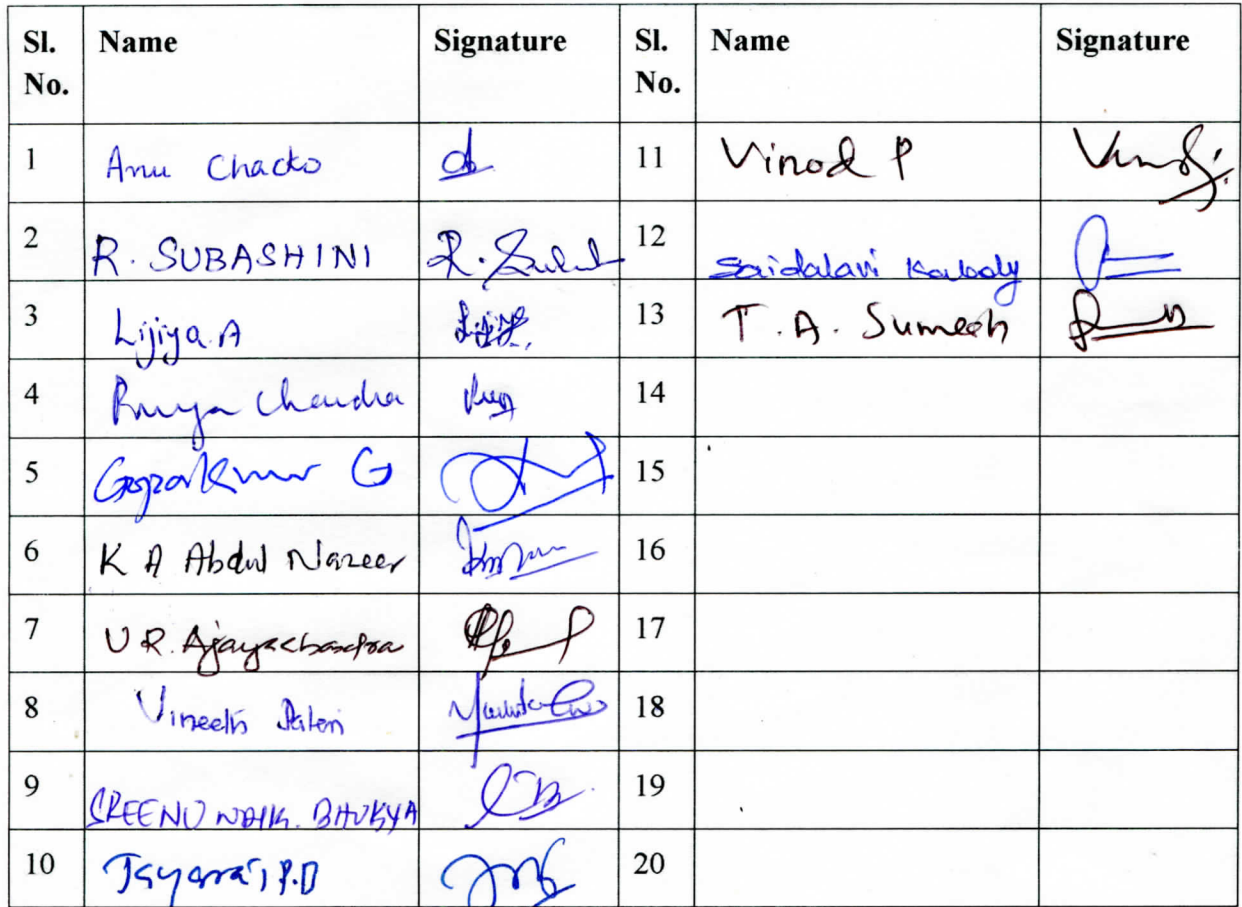 Sl. No. Name Signature Sl. No. Name Signature
1 Anu Chacko 11 Vinod P
2 R. SUBASHINI R. 12
Saidalavi Kalady
3 Lijiya A Lijiya 13 T. A. Sumesh
4 Chandra 14
5 Gopakumar G 15
6 K A Abdul Nazeer 16
7 U R. Ajayachandra 17
8 Vineeth 18
9 SREENU NAIK. BHUKYA 19
10 Jayaraj P.B 20